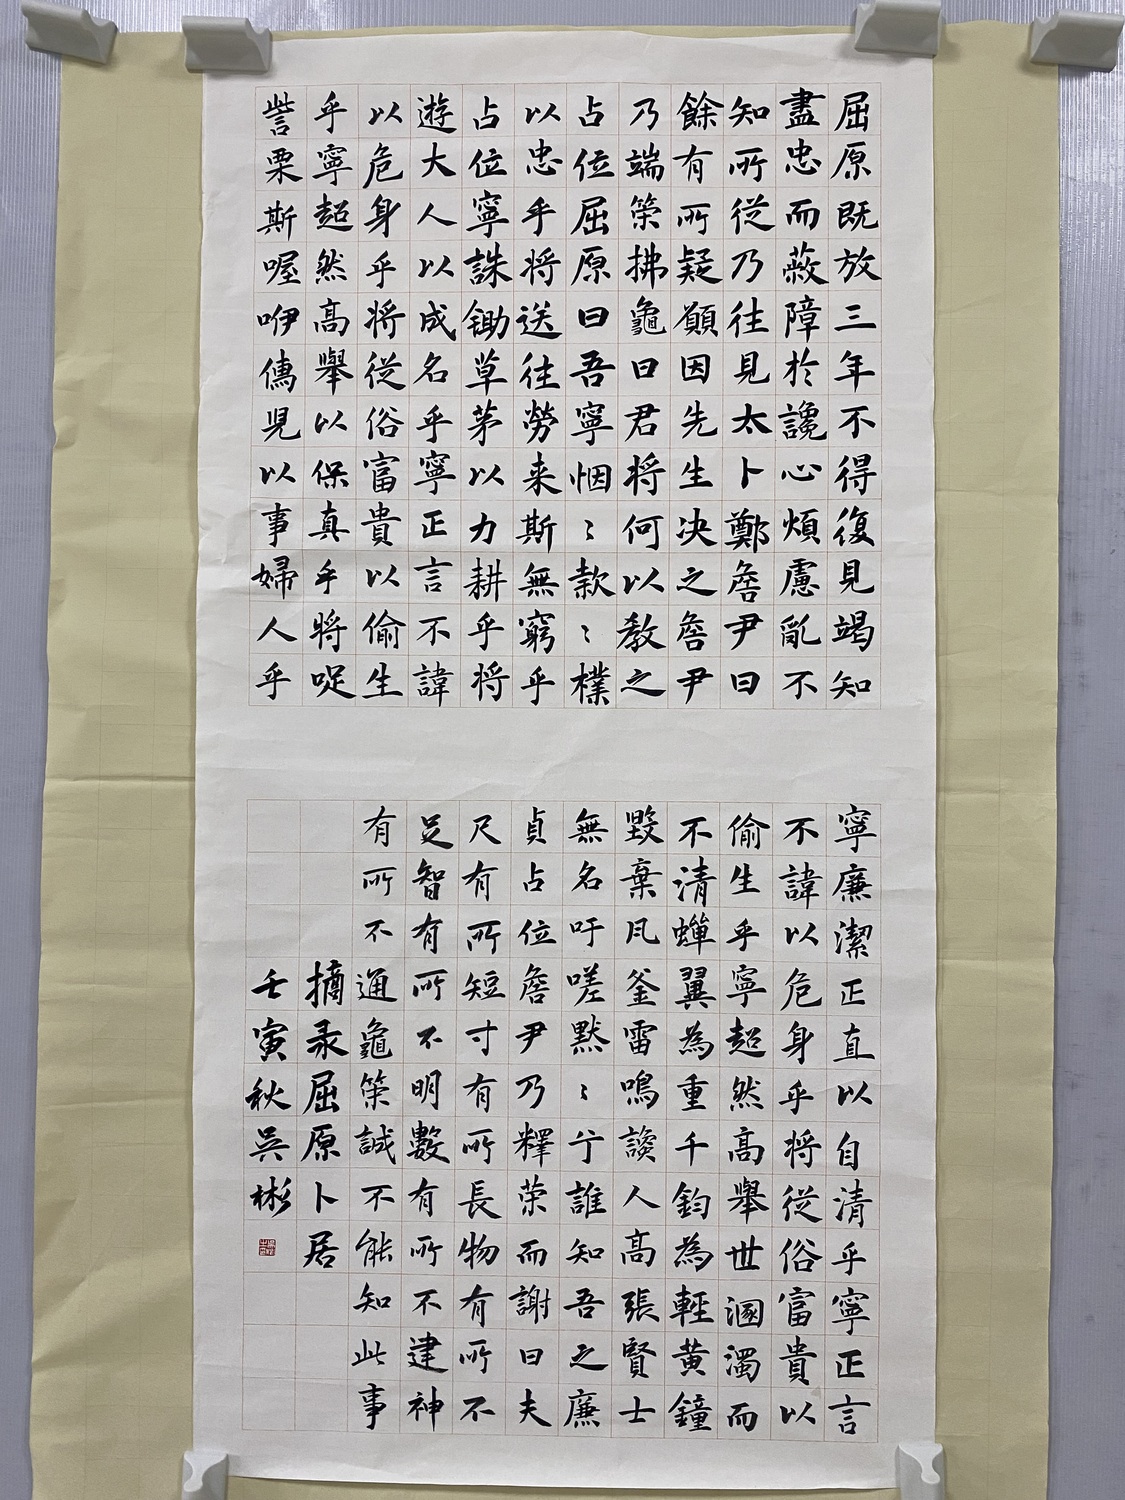 屈原既放三年不得復見竭知
盡忠而蔽障於讒心煩慮亂不
知所從乃往見太卜鄭詹尹曰
餘有所疑願因先生决之詹尹
乃端策拂龜曰君將何以教之
占位屈原曰吾寧悃〻款〻樸
以忠乎將送往勞来斯無窮乎
占位寧誅鋤草茅以力耕乎將
遊大人以成名乎寧正言不諱
以危身乎將從俗富貴以偷生
乎寧超然高舉以保真乎將哫
訾栗斯喔咿儒兒以事婦人乎
寧廉潔正直以自清乎寧正言
不諱以危身乎將從俗富貴以
偷生乎寧超然高舉世溷濁而
不清蟬翼為重千鈞為輕黃鐘
毀棄瓦釜雷鳴讒人高張賢士
無名吁嗟默〻兮誰知吾之廉
貞占位詹尹乃釋策而謝曰夫
尺有所短寸有所長物有所不
足智有所不明數有所不逮神
有所不通龜策誠不能知此事
摘录屈原卜居
壬寅秋吳彬